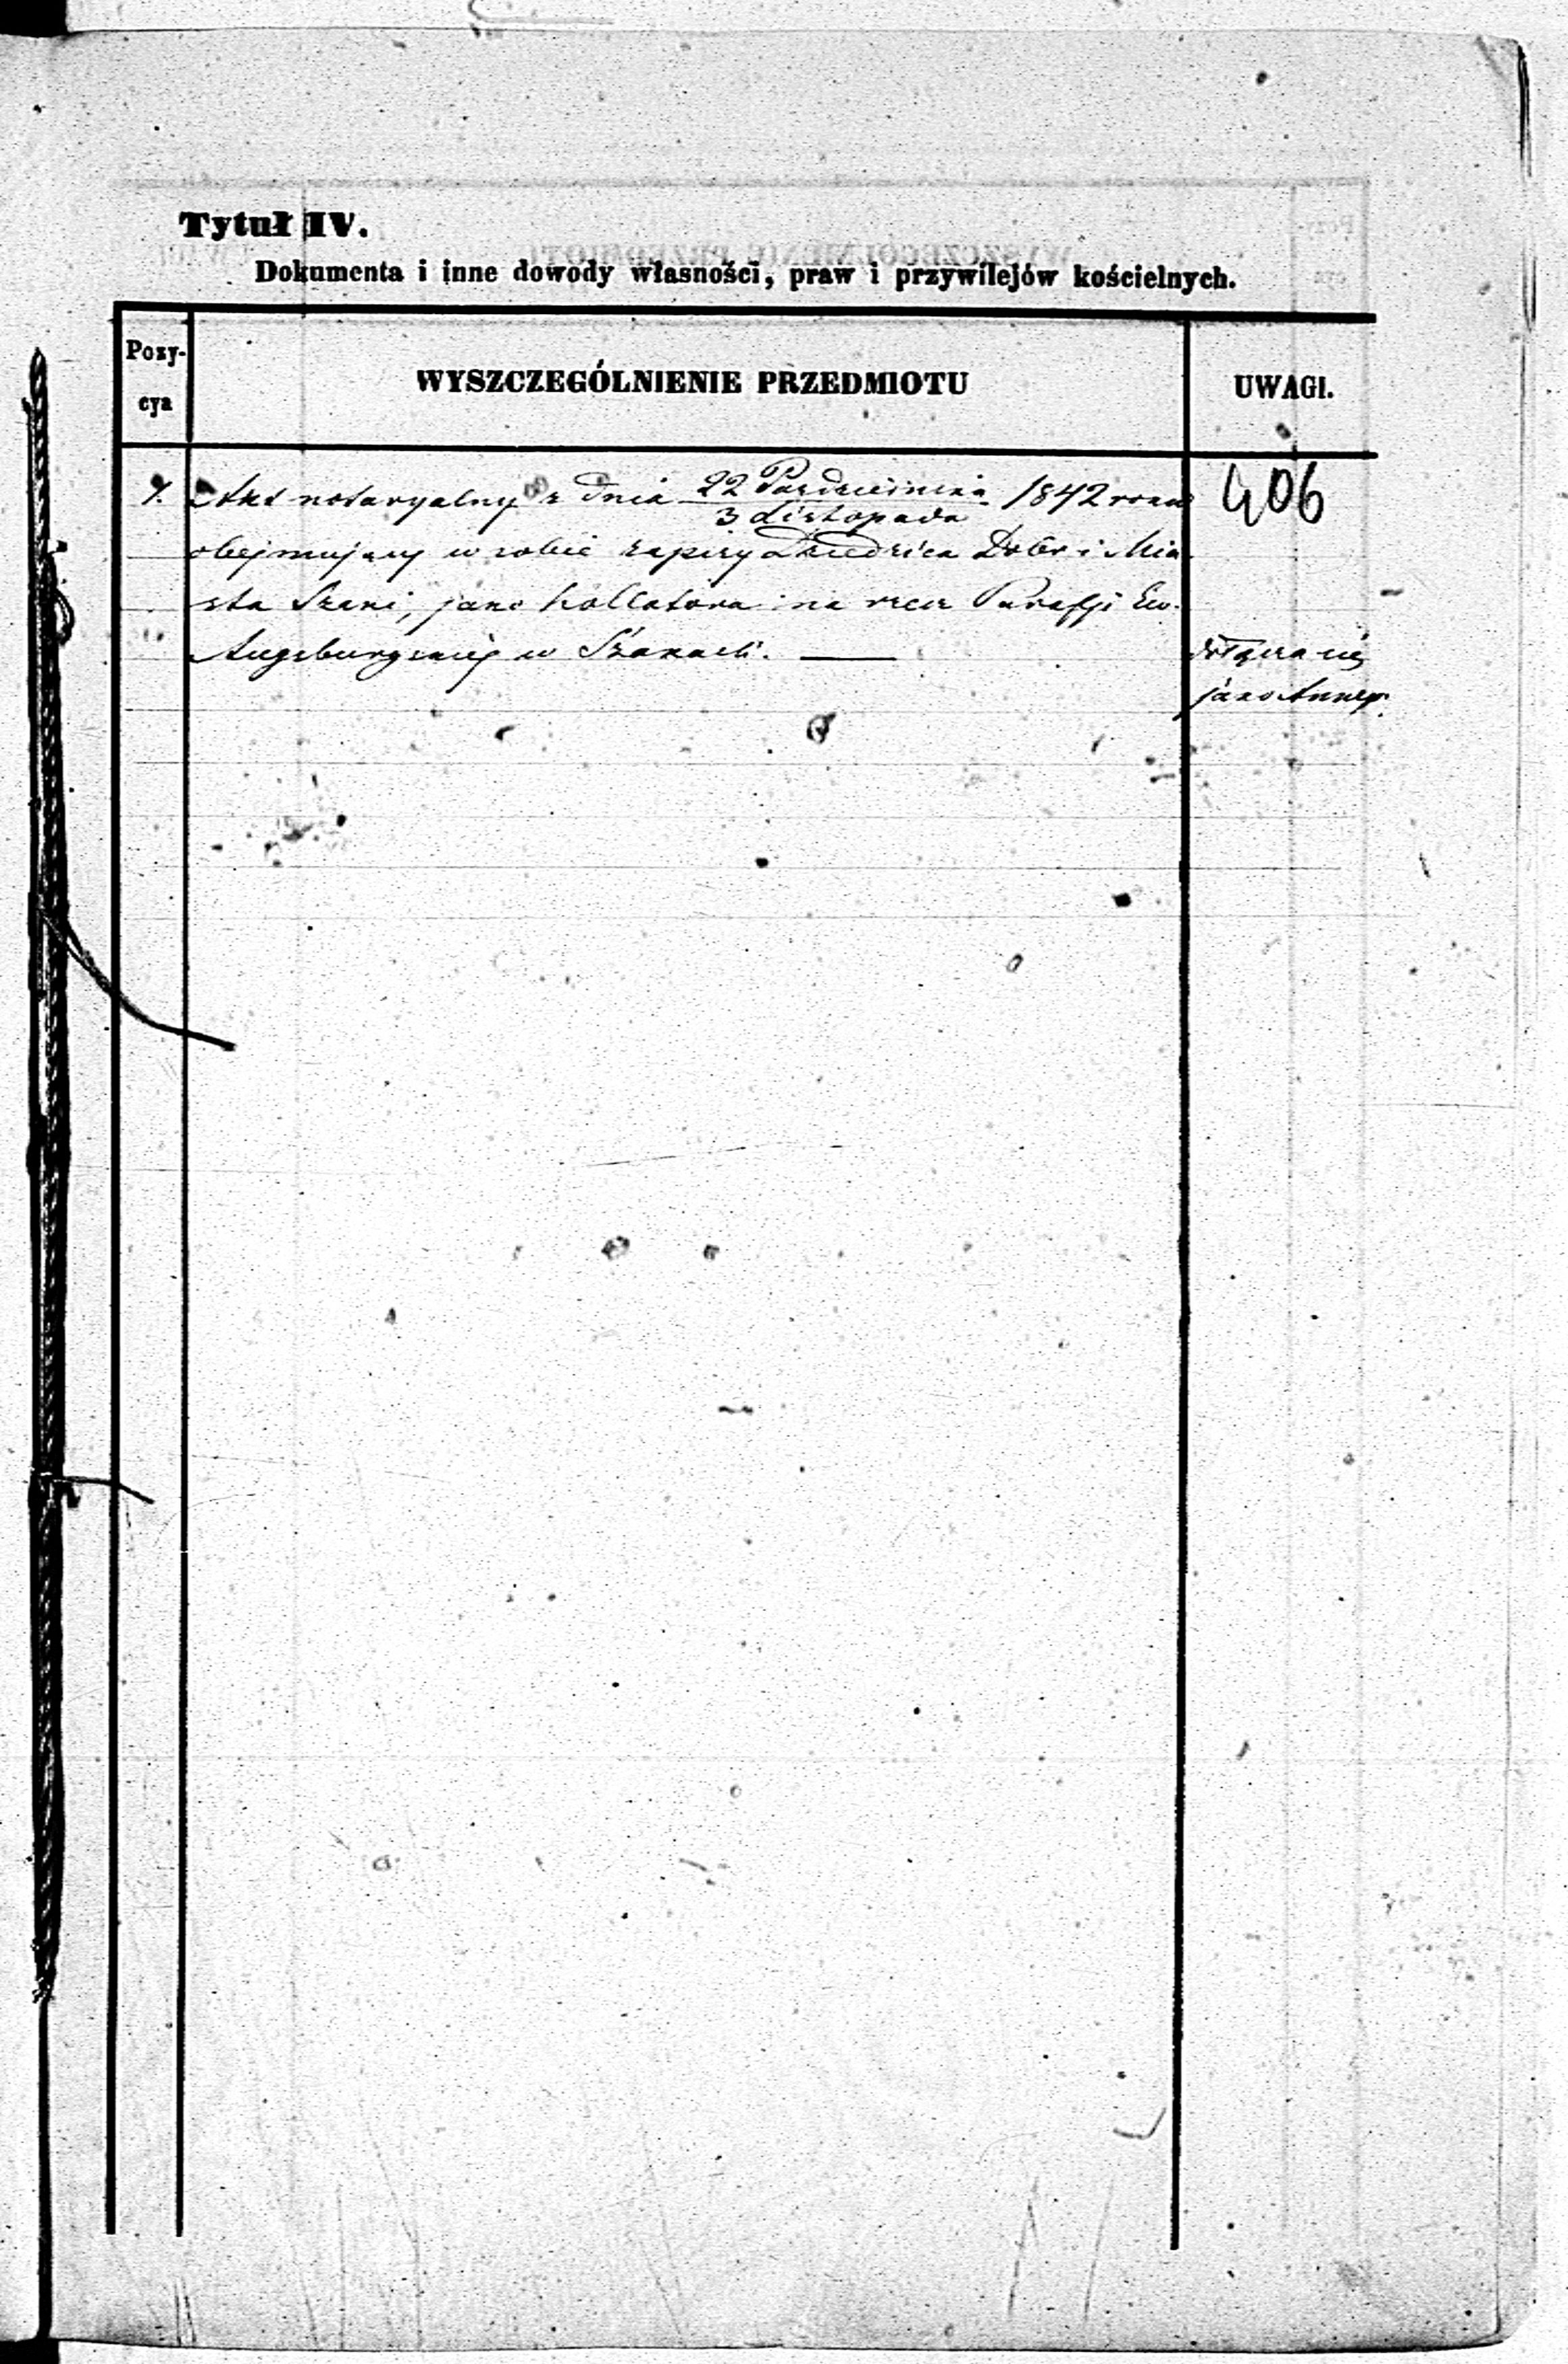 Tytuł IV.
Dokumenta i inne dowody własności, praw i przywilejów kościelnych.
Pozy-
cya
WYSZCZEGÓLNIENIE PRZEDMIOTU
UWAGI.
406
1. Akt notaryalny z dnia 22 Października / 3 Listopada 1842 roku
obejmujący w sobie zapisy Dziedzica Dóbr i Mia-
sta Szaki, jako Kollatora na rzecz Parafji Ew.
Augsburgskiej w Szakach. ———
dołącza się
jako Annex.